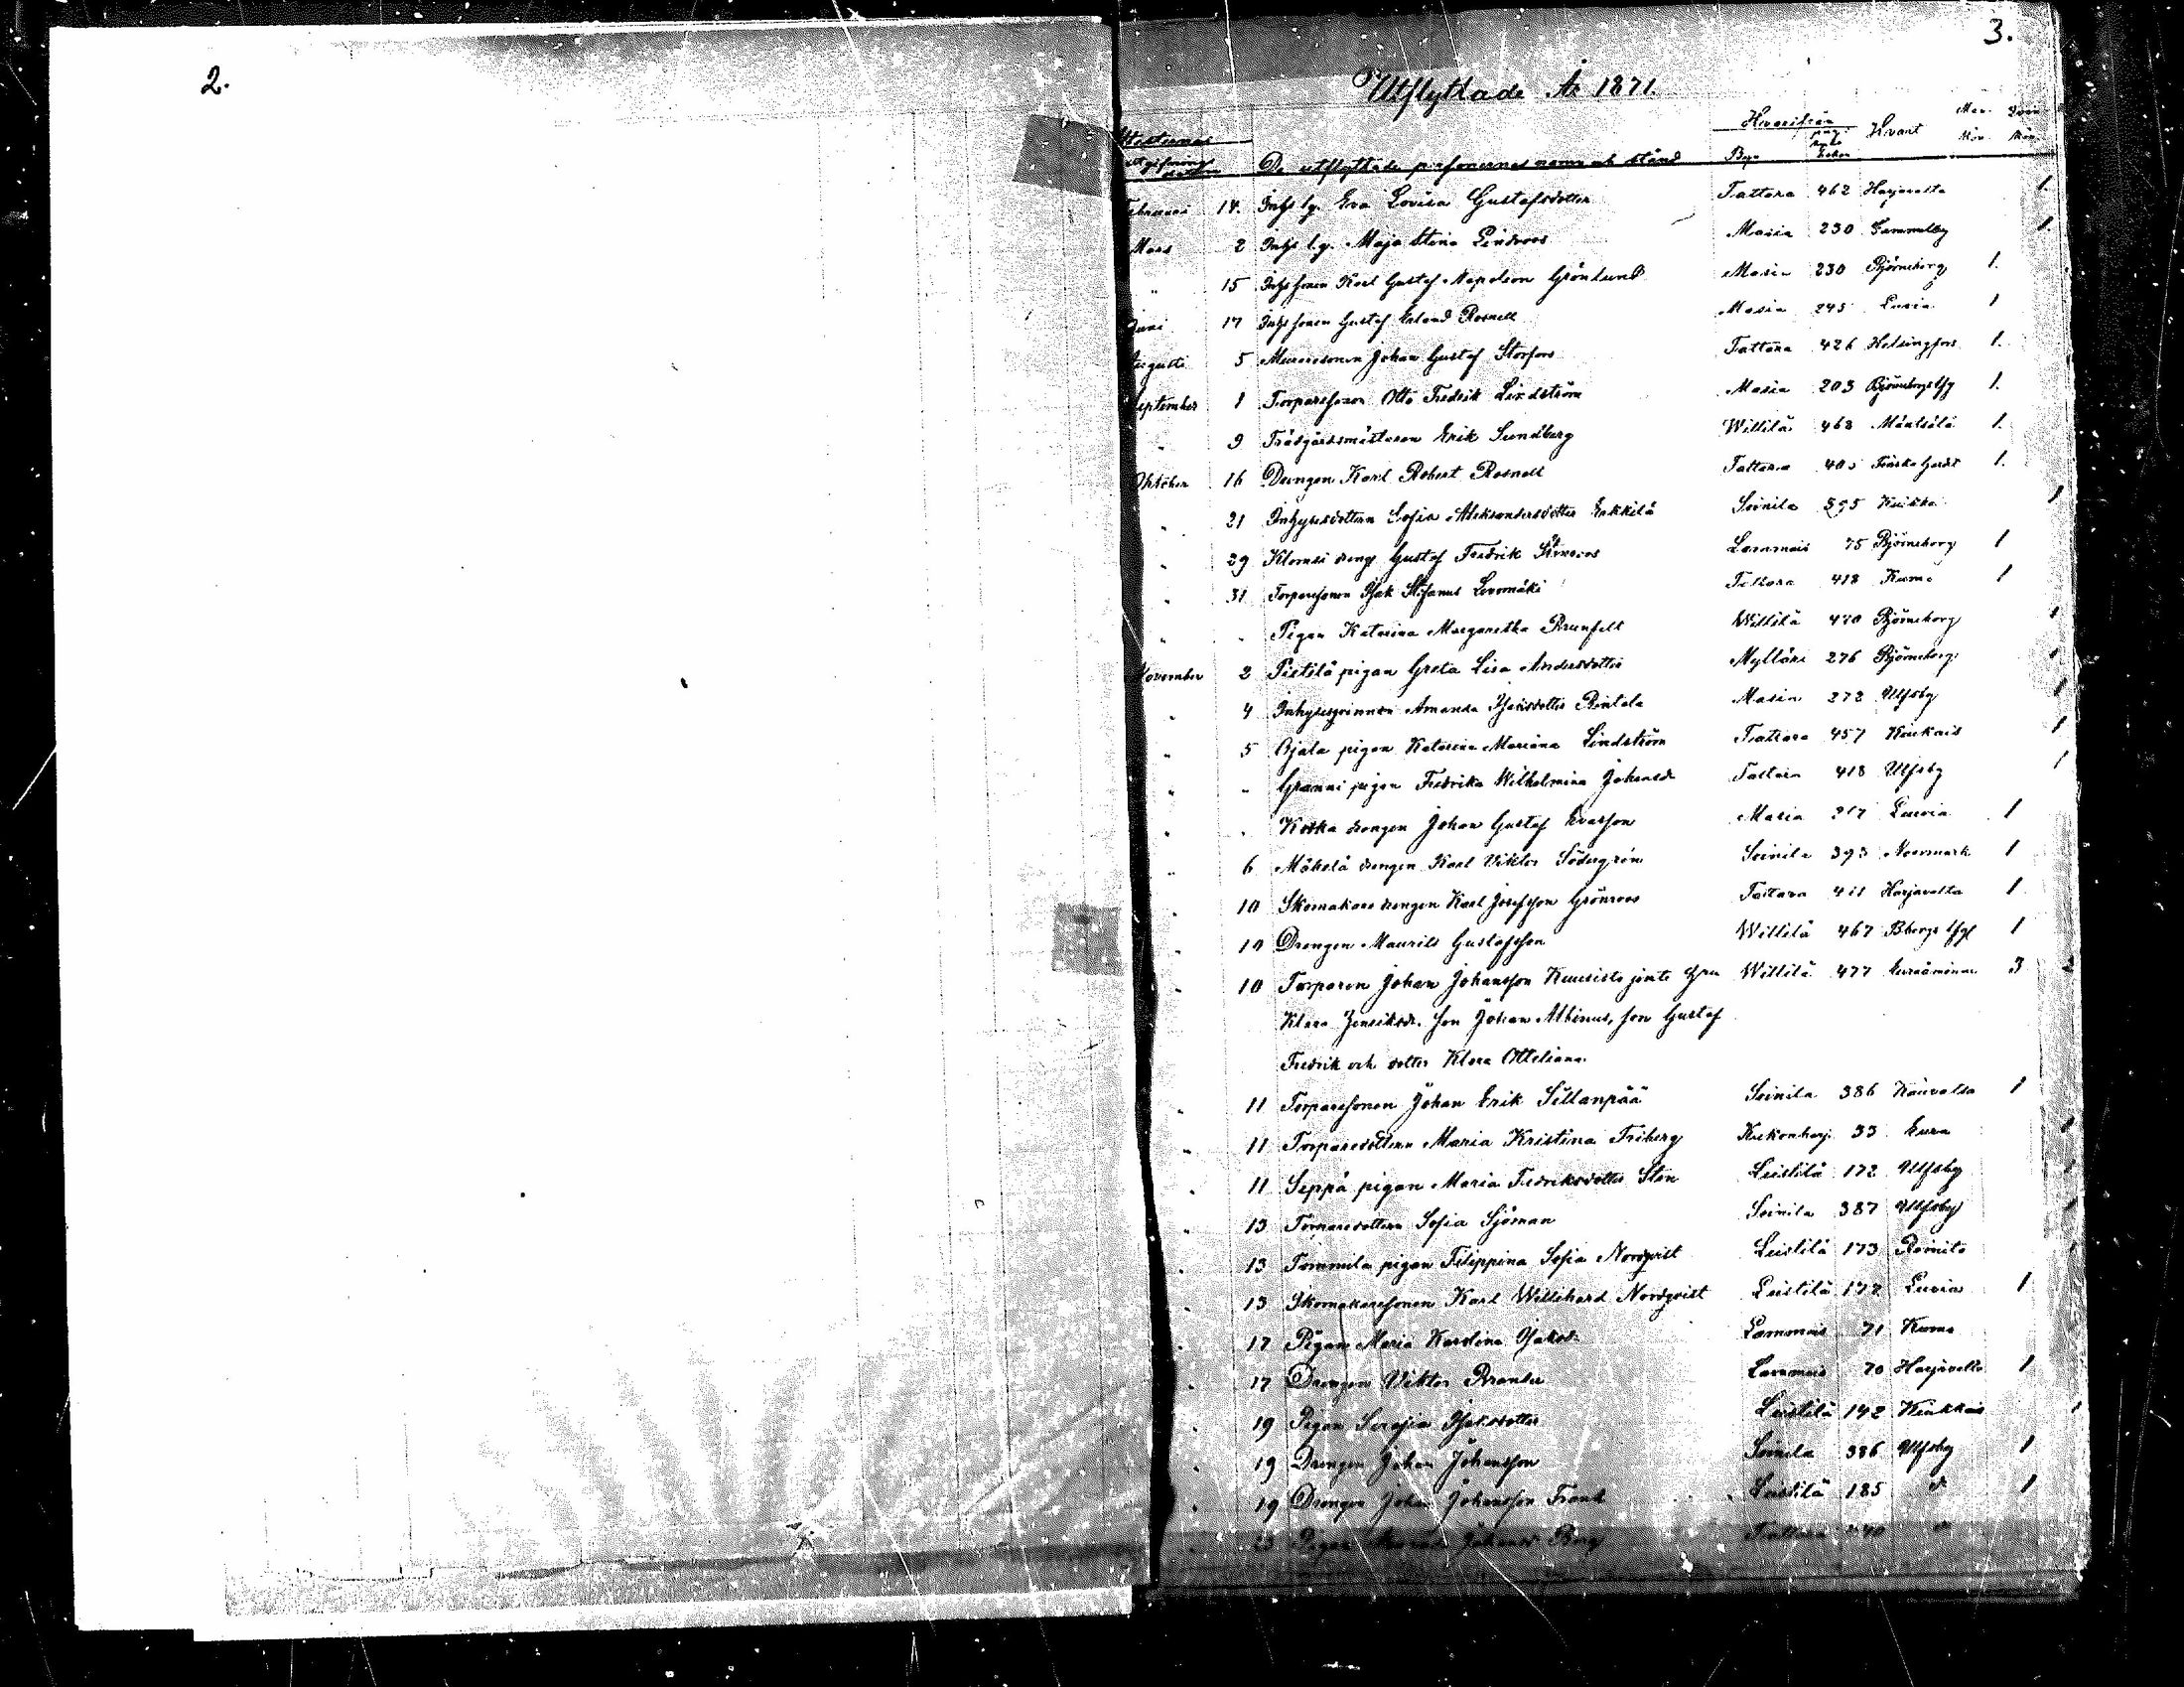 2.
3.
Utflyttade År 1871.
Attesternas Hvarifrån Hvart Man Qvin
utgifnings De utflyttade personernas namn och stånd By Kön Kön
Februari 14. Inhs lg. Eva Lovisa Gustafsdotter Tattara 462 Harjavalta 1.
Mars 2 Inhs lg. Maja Stina Lindroos Masia 230 Gammelby 1.
" 15 Inhs sonen Karl Gustaf Napoleon Grönlund Masia 230 Björneborg 1.
Juni 17 Inhs sonen Gustaf Erland Rosnell Masia 245 Luvia 1
Augusti 5 Muraresonen Johan Gustaf Storfors Tattara 426 Helsingfors 1.
September 1 Torparesonen Otto Fredrik Lindström Masia 203 Björneborgs lfg 1.
" 9 Trädgårdsmästaren Erik Sundberg Willilä 468 Mäntsälä 1.
Oktober 16 Drengen Karl Robert Rosnell Tattara 405 1.
" 21 Inhysesdottern Sofia Aleksandersdotter Erkkilä Soinila 395 1
" 29 dreng Gustaf Fredrik Stenroos Lammais 75 Björneborg 1
" 31 Torparesonen Isak Stefanus Tattara 418 Kumo 1
" " Pigan Katarina Margaretha Brunfelt Willilä 470 Björneborg 1
November 2 Pietilä pigan Greta Lisa Andersdotter Mylläri 276 Björneborg 1
" 4 Inhysesqvinnan Amanda Isaksdotter Rintala Masia 272 Ulfsby 1
" 5 Ojala pigan Katarina Mariana Lindström Tattara 457 Kiukais 1
" " Granni pigan Fredrika Wilhelmina Johansdr Tattara 418 Ulfsby 1
" " Koska drengen Johan Gustaf Evasson Masia 217 Luvia 1
" 6 Mäkelä drengen Karl Viktor Södergrén Soinila 393 Noormark 1
" 10 Skomakare drengen Karl Josefsson Grönroos Tattara 411 Harjavalta 1
" 10 Drengen Maurits Gustafsson Willilä 467 Bborgs lfg 1
" 10 Torparen Johan Johansson Kuusisto jemte hru Willilä 477 Euraåminne 3 2
Klara Henriksdr. son Johan Albinus, son Gustaf
Fredrik och dotter Klara Otteliana
" 11 Torparesonen Johan Erik Sillanpää Soinila 386 Kauvatsa 1
" 11 Torparedottern Maria Kristina Friberg Kukonharj. 33 Eura 1
" 11 Seppä pigan Maria Fredriksdotter Sten Leistilä 172 Ulfsby 1
" 13 Sofia Sjöman Soinila 387 Ulfsby 1
" 13 Tommila pigan Filippina Sofia Nordqvist Leistilä 173 Rimito 1
" 13 Skomakaresonen Karl Willehard Nordqvist Leistilä 177 Luvia 1
" 17 Pigan Maria Karolina Isaksdr Lammais 71 Kumo
" 17 Drengen Viktor Brander Lammais 70 Harjavalta 1
" 19 Pigan Serafia Isaksdotter Leistilä 142 Kiukkais 1
" 19 Drengen Johan Johansson Soinila 386 Ulfsby 1
" 19 Drengen Johan Johansson Frank Leistilä 185 d 1
" 23 Pigan Johansdr Berg Tattara 440 d